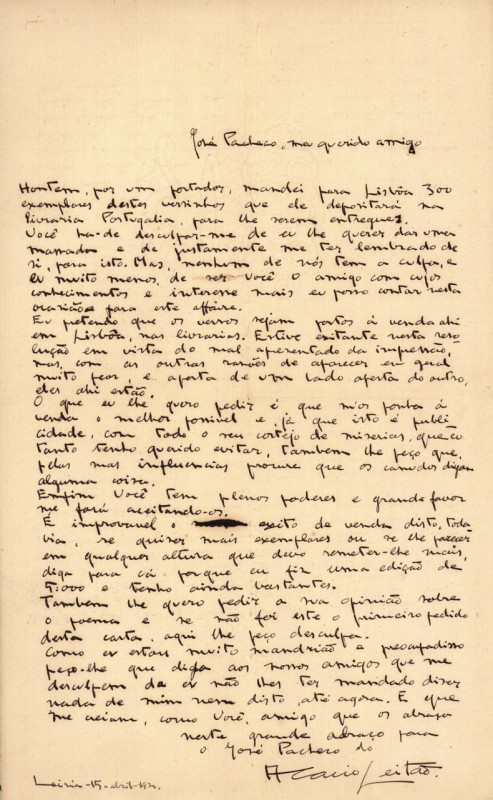 José Pacheco, meu querido amigo
Hontem, por um portador, mandei para Lisbôa 300
exemplares destes versinhos que ele depositará na
livraria Portugalia, para lhe serem entregues.
Você ha-de desculpar-me de eu lhe querer dar uma
massada e de justamente me ter lembrado de
si, para isto. Mas, nenhum de nós tem a culpa, e
eu muito menos, de ser Você o amigo com cujos
conhecimentos e interesse mais eu posso contar nesta
ocasião para este affaire.
Eu pretendo que os versos sejam postos á venda ahi
em Lisbôa, nas livrarias. Estive exitante nesta reso
lução em vista do mal apresentado da impressão,
mas, com as outras razões de aparecer em geral
muito peor, e aposta de um lado aberta do outro,
eles ahi estão.
O que eu lhe quero pedir é que m'os ponha á
venda o melhor possivel e já que isto é publi
cidade, com todo o seu cortejo de miserias, que eu
tanto tenho querido evitar, tambem lhe peço que,
pelas suas influencias procure que os canudos digam
alguma coisa.
Emfim Você tem plenos poderes e grande favor
me fará aceitando-os.
É improvavel o exito de venda disto, toda
via, se quizer mais exemplares ou se lhe parecer
em qualquer altura que devo remeter-lhe mais,
diga para cá porque eu fiz uma edição de
1:000 e tenho ainda bastantes.
Tambem lhe quero pedir a sua opinião sobre
o poema e se não foi este o primeiro pedido
desta carta aqui lhe peço desculpa.
Como eu estou muito mandrião e preocupadisso
peço-lhe que diga aos nossos amigos que me
desculpem de eu não lhes ter mandado dizer
nada de mim nem disto, até agora. E que
me creiam, como Você, amigo que os abraça
neste grande abraço para
o José Pacheco do
Acacio Leitão.
Leiria - 15 - abril - 192